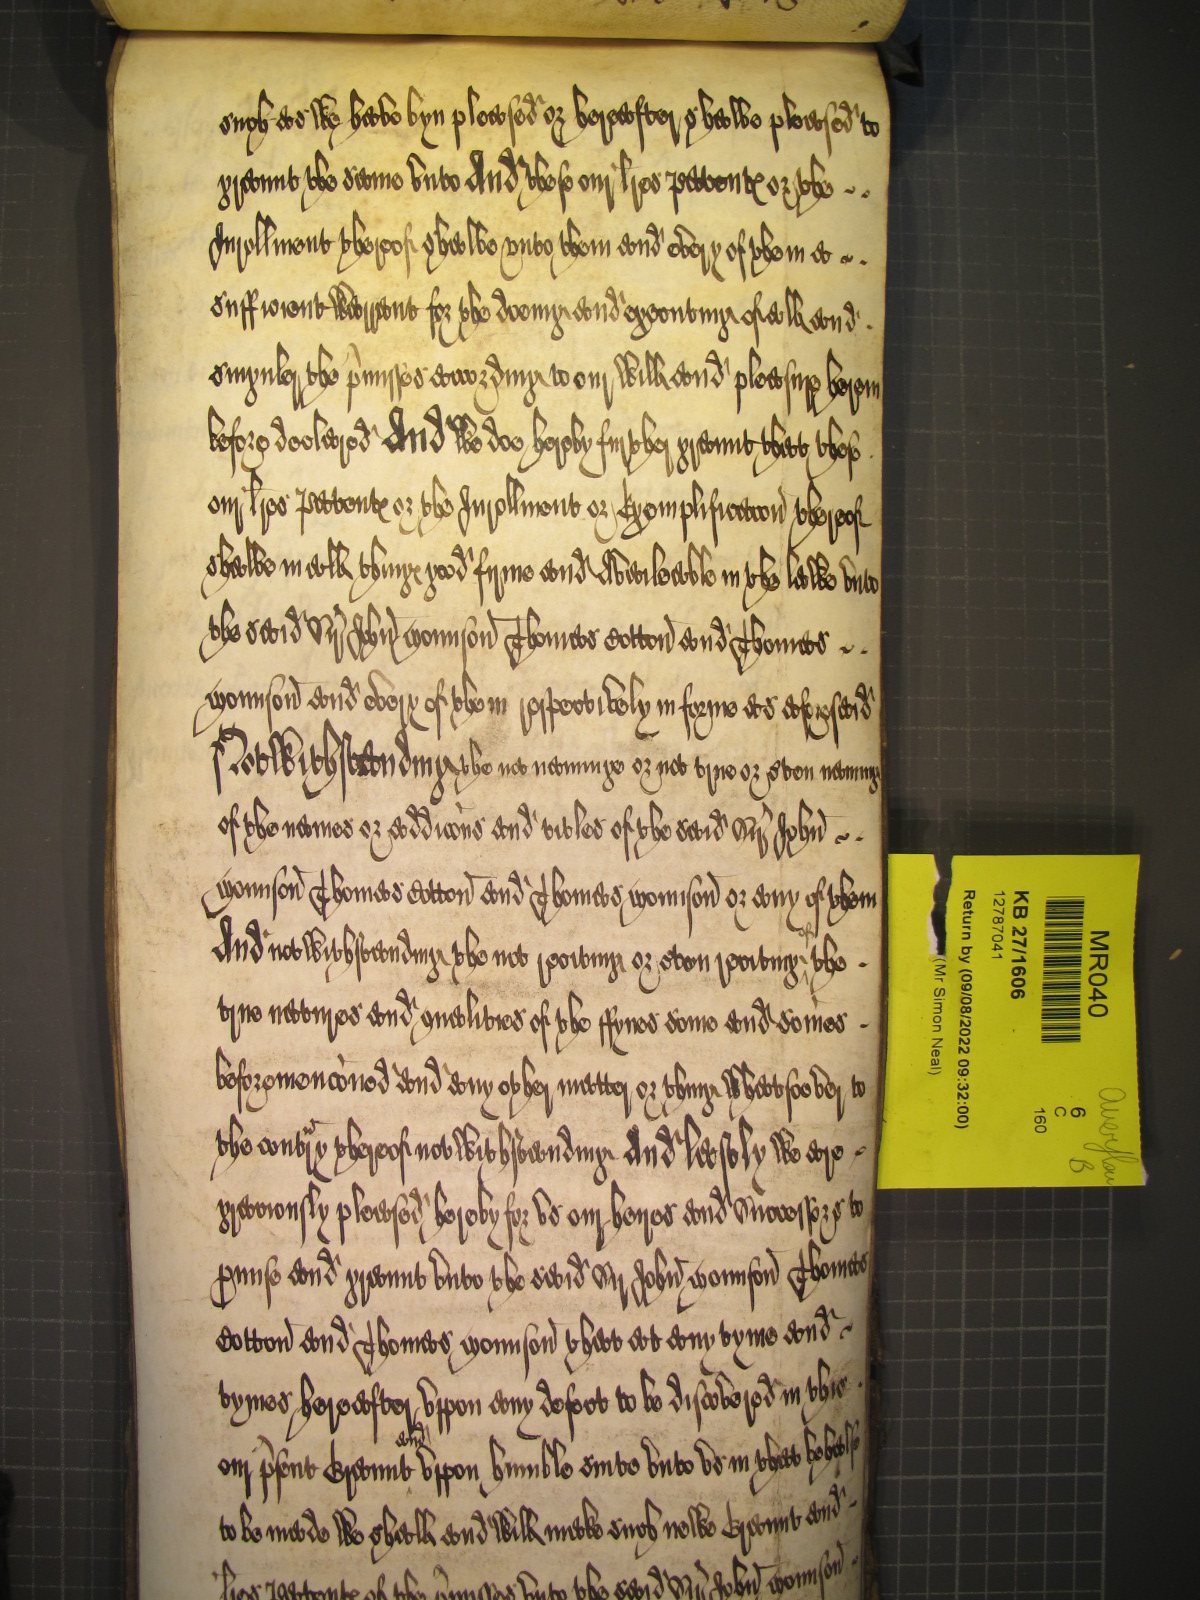 such as We have byn pleased or hereafter shalbe pleased to
graunt the same vnto And these our lres Patentes or the
Inrollment thereof shalbe vnto them and every of them a
sufficient Warrant for the doeing and executing of all and
singuler the pmisses according to our Will and pleasure herein
before declared And We doe hereby further graunt that these
our lres Patentes or the Inrollment or Exemplificacon thereof
shalbe in all thinges good firme and Availeable in the lawe vnto
the said Sr John Wonnson Thomas Cotton and Thomas
Wonnson and every of them respectively in forme as aforesaid
Notwithstanding the not naminge or not true or even naming
of the names or addicons and titles of the said Sr John
Wonnson Thomas Cotton and Thomas Wonnson or any of them
And notwithstanding the not reciting or even reciting of the
true natures and qualities of the ffynes some and somes
beforemenconed and any other matter or thing Whatsoever to
the contrary thereof notwithstanding And lastly We are
graciously pleased hereby for vs our heires and Successors to
pmise and graunt vnto the said Sr John Wonnson Thomas
Cotton and Thomas Wonnson that at any tyme and
tymes hereafter vppon any defect to be discovered in this
our psent Graunt and vppon humble suite vnto vs in that behalfe
to be made We shall and Will make such newe Graunt and
lres Patentes of the pmisses vnto the said Sr John Wonnson
MR040
KB 27/1606
12787041
Return by (09/08/2022 09:32:00)
(Mr Simon Neal)
6
C
160
B